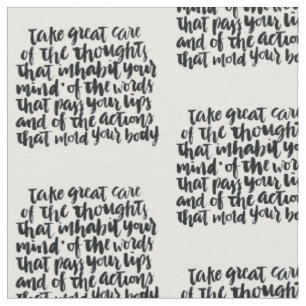 take great care
of the thoughts
that inhabit your
mind, of the words
that pass your lips
and of the actions
that mold your body
take great care
of the thoughts
that inhabit your
mind, of the words
that pass your lips
and of the actions
that mold your body
that inhabit your
mind, of the words
that pass your lips
and of the actions
that mold your body
take great care
of the thoughts
that inhabit your
mind, of the words
that pass your lips
and of the actions
that mold your body
take great care
of the thoughts